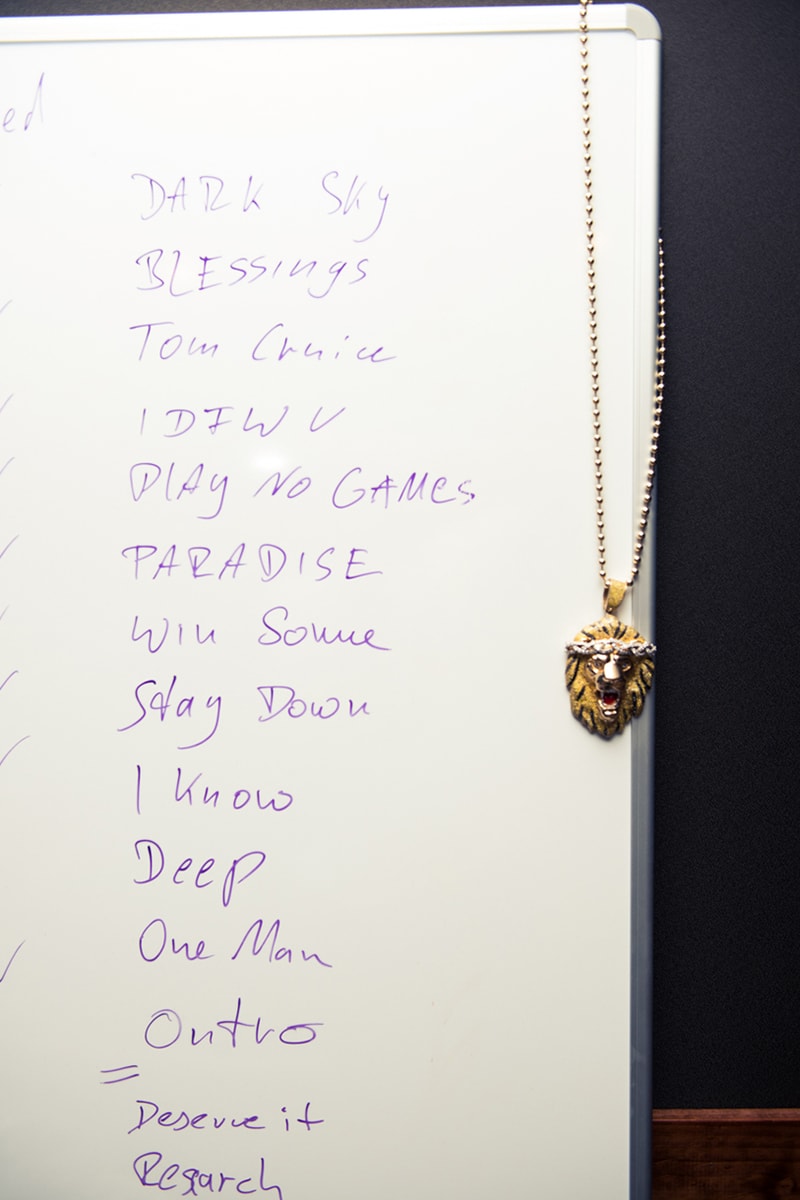 ed
DARK Sky
BLESSINGS
Tom Cruice
IDFWU
PLAY NO GAMES
PARADISE
Win Some
Stay Down
I Know
Deep
One Man
Outro
=
Deserve it
Resarch